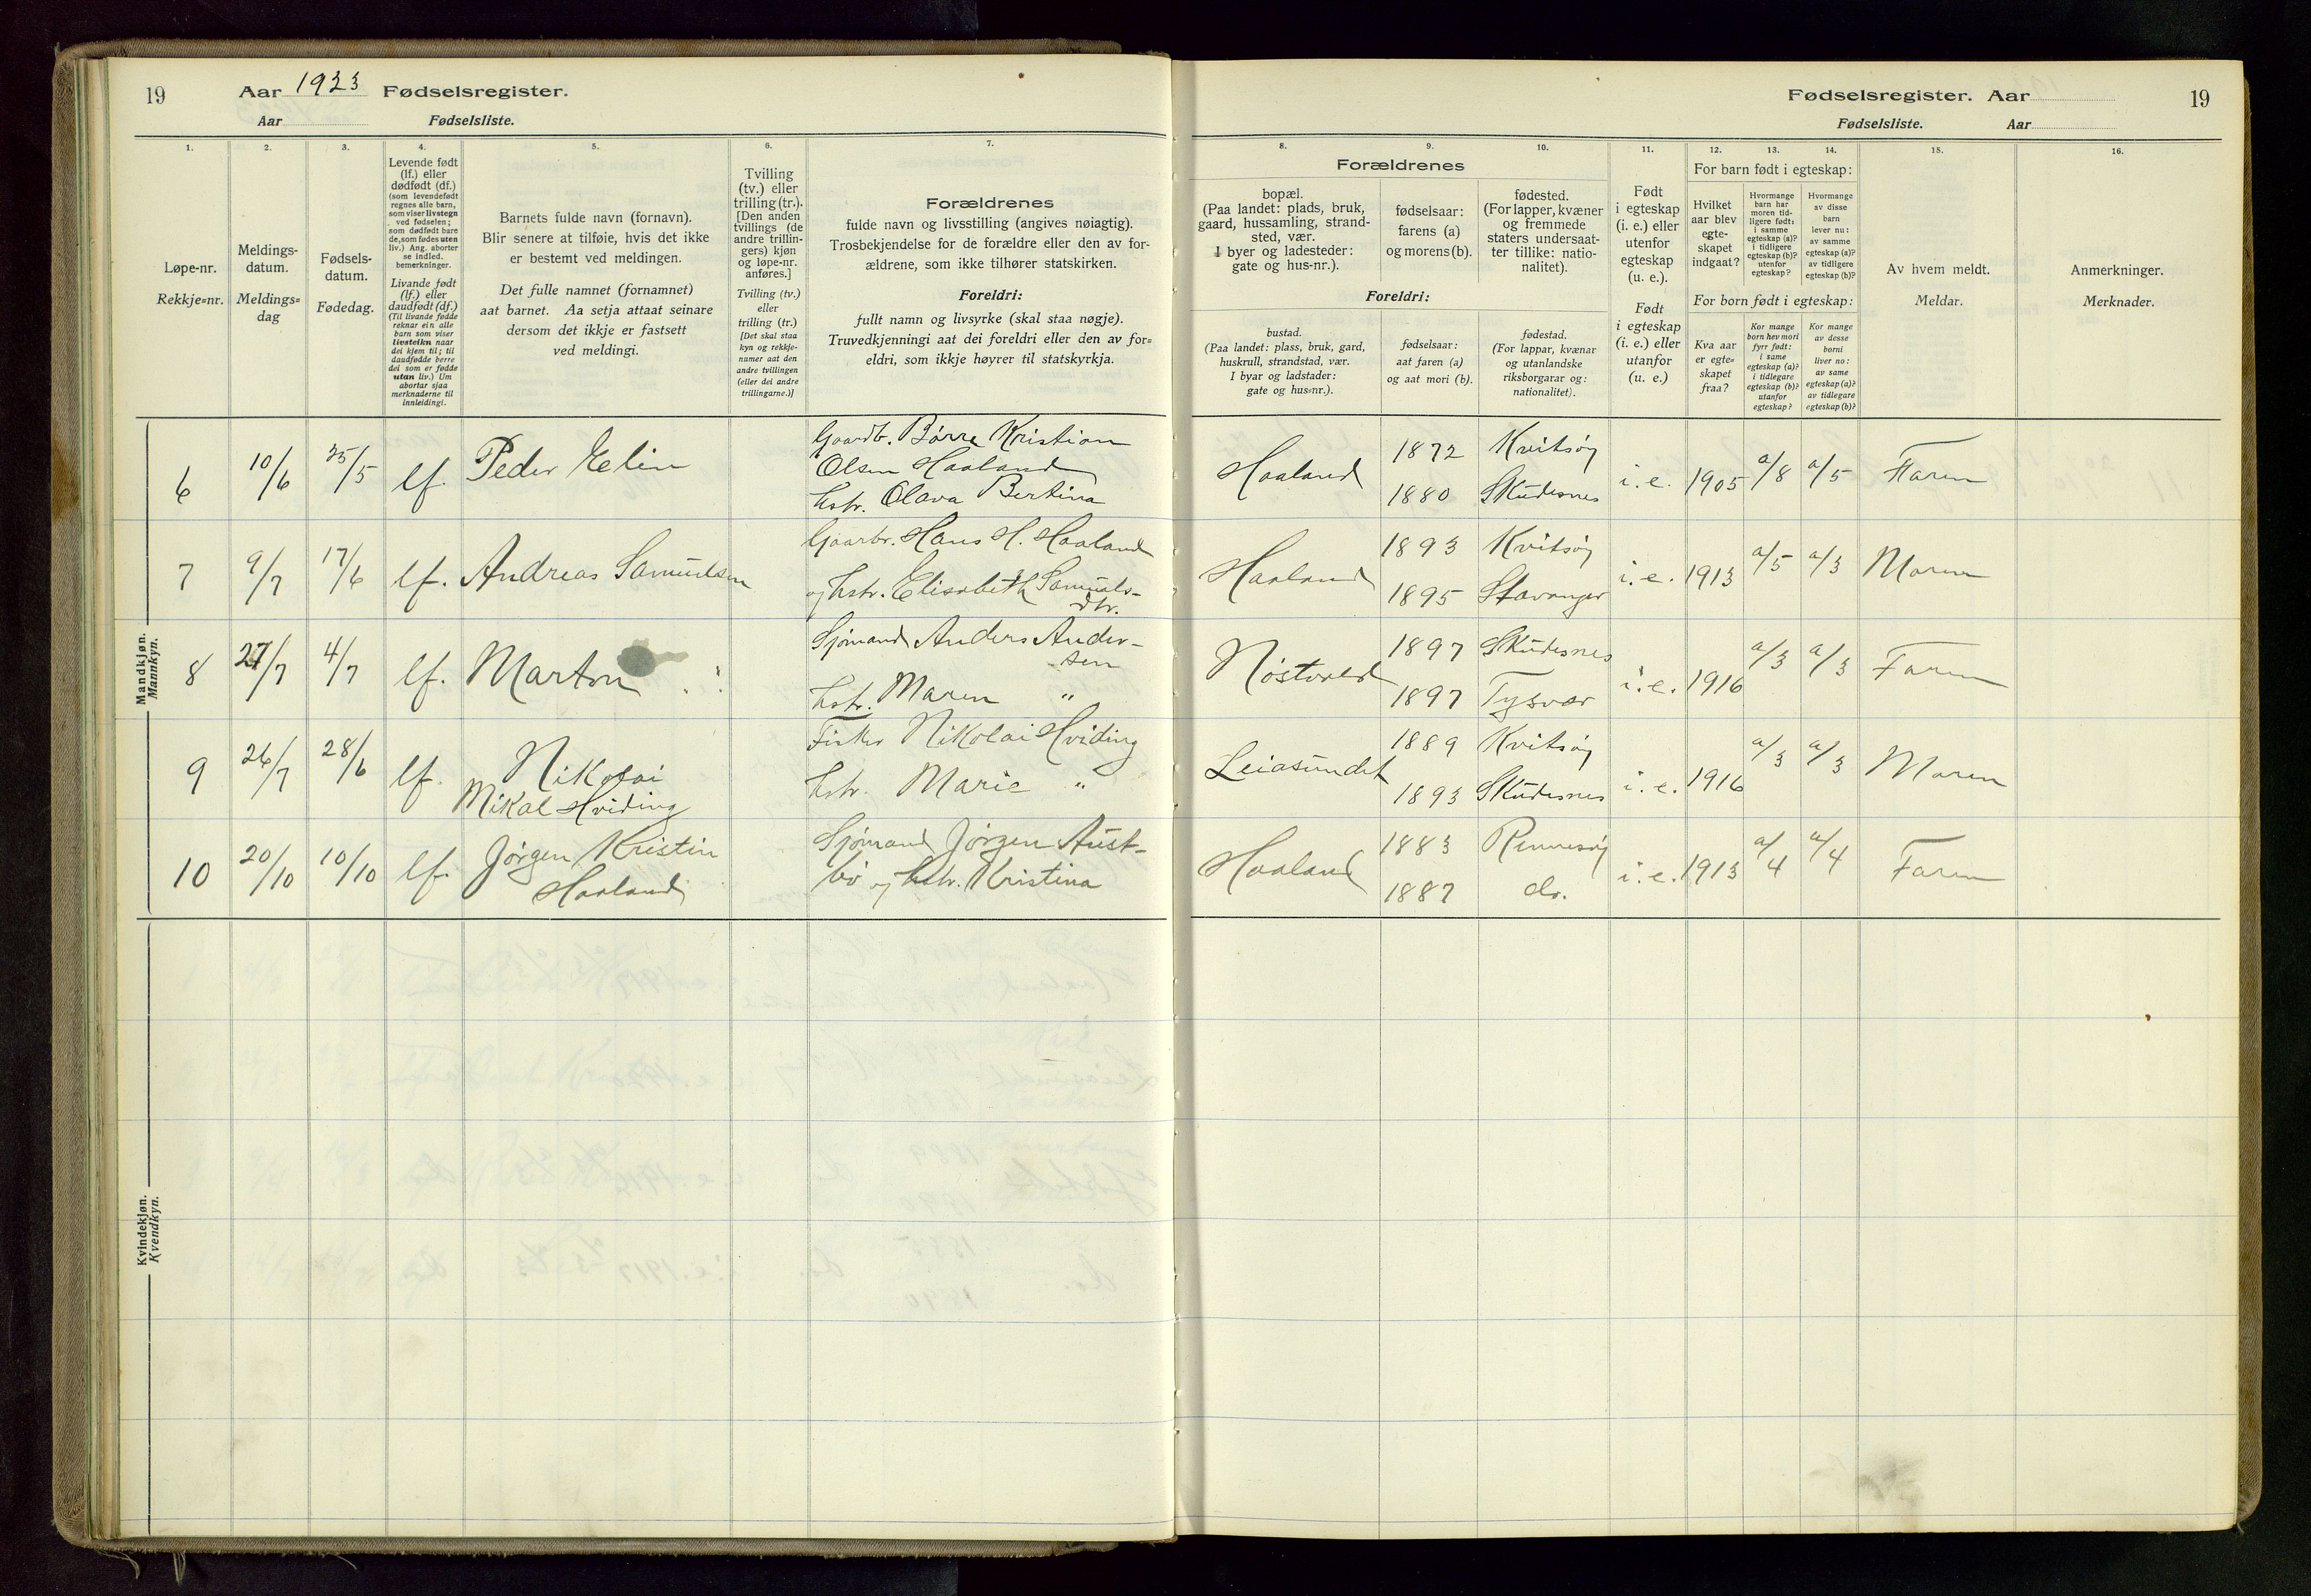 19
Aar 1923 Fødselsregister.
Aar Fødselsliste.
Fødselsregister. Aar
19
Fødselsliste. Aar
1. 2. 3. 4. 5. 6. 7.
Løpe-nr.
Rekkje-nr.
Meldings-
datum.
Meldings-
dag
Fødsels-
datum.
Fødedag.
Levende født
(lf.) eller
dødfødt (df.)
(som levendefødt
regnes alle barn,
som viser livstegn
ved fødselen;
som dødfødt bare
de, som fødes uten
liv.) Ang. aborter
se indled.
bemerkninger.
Livande født
(lf.) eller
daudfødt (df.)
(Til livande fødde
reknar ein alle
barn som viser
livsteikn naar
dei kjem til; til
daudfødde berre
dei som er fødde
utan liv.) Um
abortar sjaa
merknaderne til
innleidingi.
Barnets fulde navn (fornavn).
Blir senere at tilføie, hvis det ikke
er bestemt ved meldingen.
Det fulle namnet (fornamnet)
aat barnet. Aa setja attaat seinare
dersom det ikkje er fastsett
ved meldingi.
Tvilling
(tv.) eller
trilling (tr.).
[Den anden
tvillings (de
andre trillin-
gers) kjøn
og løpe-nr.
anføres.]
Tvilling (tv.)
eller
trilling (tr.)
[Det skal staa
kyn og rekkje-
numer aat den
andre tvillingen
(eller dei andre
trillingarne.)]
Forældrenes
fulde navn og livsstilling (angives nøiagtig).
Trosbekjendelse for de forældre eller den av for-
ældrene, som ikke tilhører statskirken.
Foreldri:
fullt namn og livsyrke (skal staa nøgje).
Truvedkjenningi aat dei foreldri eller den av for-
eldri, som ikkje høyrer til statskyrkja.
8. 9. 10. 11. 12. 13. 14. 15. 16.
Forældrenes
bopæl.
(Paa landet: plads, bruk,
gaard, hussamling, strand-
sted, vær.
I byer og ladesteder:
gate og hus-nr.).
fødselsaar:
farens (a)
og morens (b).
fødested.
(For lapper, kvæner
og fremmede
staters undersaat-
ter tillike: natio-
nalitet).
Foreldri:
bustad.
(Paa landet: plass, bruk, gard,
huskrull, strandstad, vær.
I byar og ladstader:
gate og hus-nr.).
fødselsaar:
aat faren (a)
og aat mori (b).
fødestad.
(For lappar, kvænar
og utanlandske
riksborgarar og:
nationalitet).
Født
i egteskap
(i. e.) eller
utenfor
egteskap
(u. e.).
Født
i egteskap
(i. e.) eller
utanfor
(u. e.)
For barn født i egteskap:
Hvilket
aar blev
egte-
skapet
indgaat?
Hvormange
barn har
moren tid-
ligere født:
i samme
egteskap (a)?
i tidligere
egteskap (b)?
utenfor
egteskap?
Hvormange
av disse
barn
lever nu:
av samme
egteskap (a)?
av tidligere
egteskap (b)?
For born født i egteskap:
Kva aar
er egte-
skapet
fraa?
Kor mange
born hev mori
fyrr født:
i same
egteskap (a)?
i tidlegare
egteskap (b)?
utanfor
egteskap?
Kor mange
av desse
borni
liver no:
av same
egteskap (a)?
av tidlegare
egteskap (b)?
Av hvem meldt.
Meldar.
Anmerkninger.
Merknader.
Mandkjøn.
Mannkyn.
6 10/6 25/5 lf. Peder Elin
Gaardb. Børre Kristian
Olsen Haaland
hstr. Olava Bertina
Haaland 1872 Kvitsøy i. e. 1905 a/8 a/5 Faren
1880 Skudesnes
7 9/7 17/6 lf. Andreas Samuelsen
Gaarbr. Hans H. Haaland
og hstr. Elisabeth Samuels-
dtr.
Haaland 1893 Kvitsøy i. e. 1913 a/5 a/3 Moren
1895 Stavanger
8 27/7 4/7 lf. Marton
Sjømand Anders Ander-
sen
hstr. Maren "
1897 Skudesnes i. e. 1916 a/3 a/3 Faren
1897 Tysvær
9 26/7 28/6 lf. Nikolai
Mikal Hviding
Fisker Nikolai Hviding
hstr. Marie "
Leiasundet 1889 Kvitsøy i. e. 1916 a/3 a/3 Moren
1893 Skudesnes
10 20/10 10/10 lf. Jørgen Kristin
Haaland
Sjømand Jørgen Aust-
bø og hstr. Kristina
Haaland 1883 Rennesøy i. e. 1913 a/4 a/4 Faren
1887 do.
Kvindekjøn.
Kvendkyn.